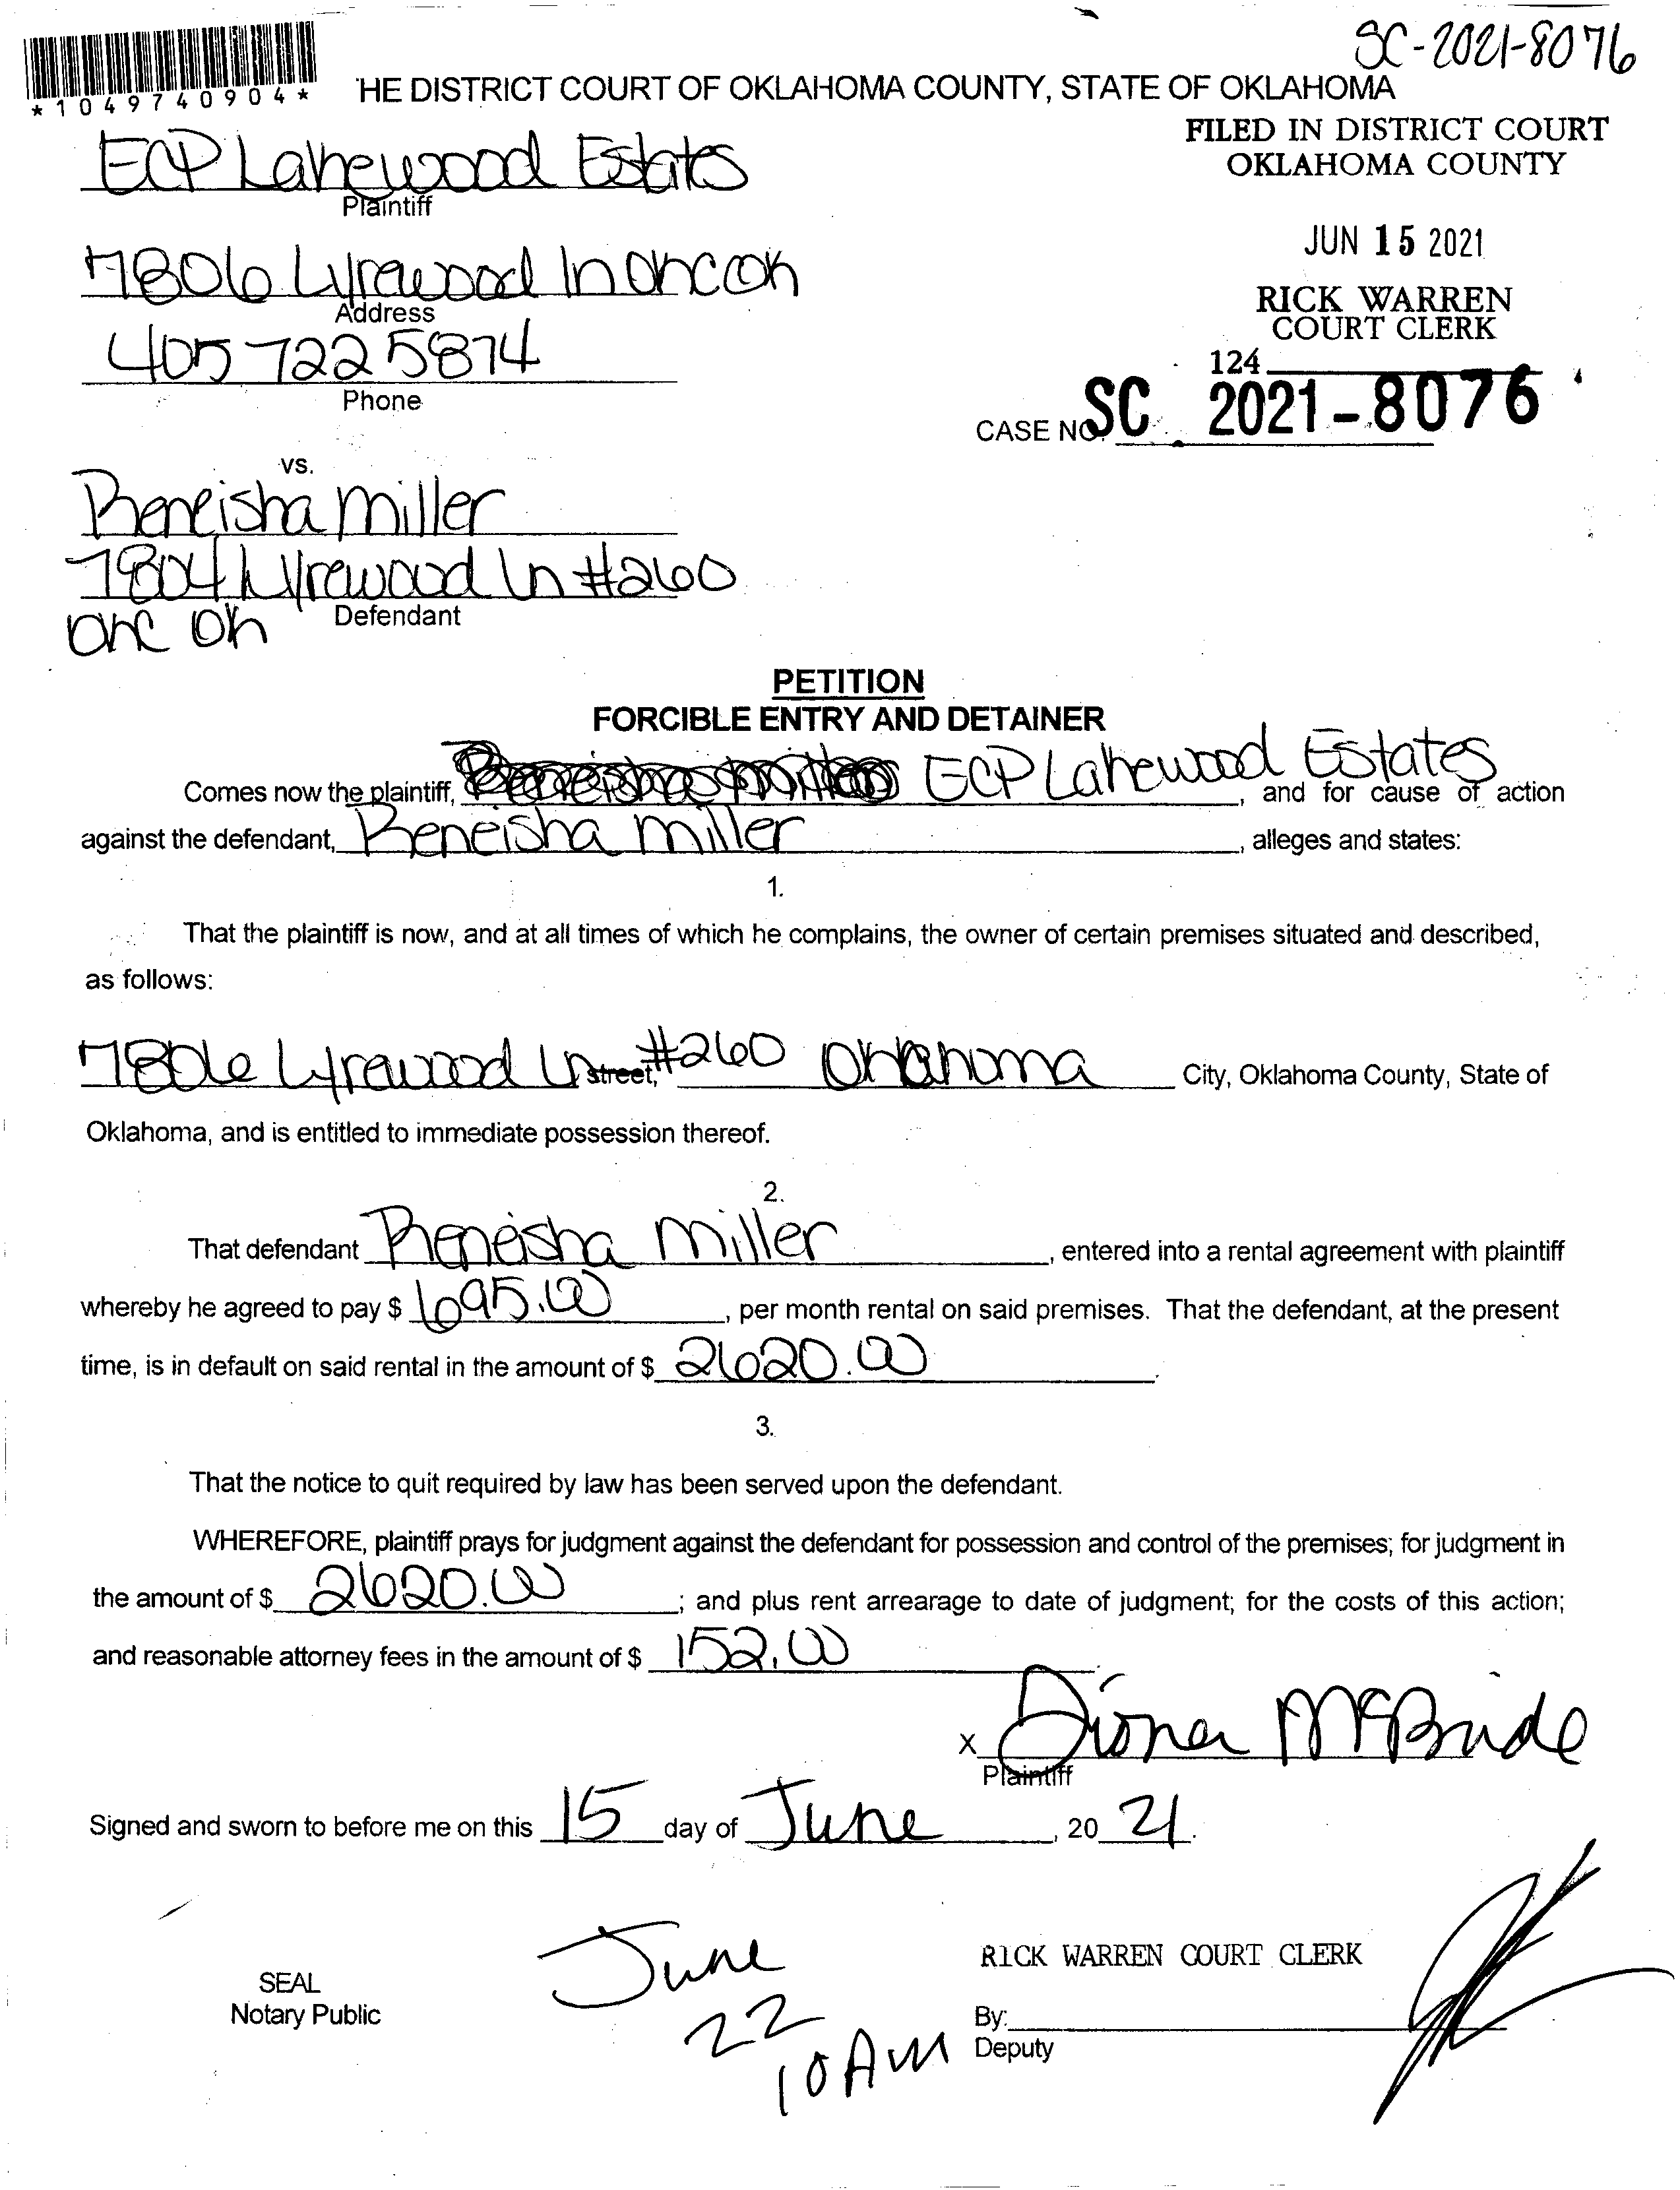 SC-2021-8076
*1049740904*
HE DISTRICT COURT OF OKLAHOMA COUNTY, STATE OF OKLAHOMA
FILED IN DISTRICT COURT
OKLAHOMA COUNTY
ECP Lakewood Estates
Plaintiff
JUN 15 2021
7806 Lyrewood ln okc ok
Address
RICK WARREN
COURT CLERK
405 722 5874
Phone
124
CASE NO. SC 2021-8076
vs.
Reneisha Miller
7804 Lyrewood ln #260
Defendant
okc ok
PETITION
FORCIBLE ENTRY AND DETAINER
Comes now the plaintiff, ECP Lakewood Estates, and for cause of action
against the defendant, Reneisha Miller, alleges and states:
1.
That the plaintiff is now, and at all times of which he complains, the owner of certain premises situated and described,
as follows:
7806 Lyrewood Ln street, #260 Oklahoma City, Oklahoma County, State of
Oklahoma, and is entitled to immediate possession thereof.
2.
That defendant Reneisha Miller, entered into a rental agreement with plaintiff
whereby he agreed to pay $ 695.00, per month rental on said premises. That the defendant, at the present
time, is in default on said rental in the amount of $ 2620.00.
3.
That the notice to quit required by law has been served upon the defendant.
WHEREFORE, plaintiff prays for judgment against the defendant for possession and control of the premises; for judgment in
the amount of $ 2620.00; and plus rent arrearage to date of judgment; for the costs of this action;
and reasonable attorney fees in the amount of $ 152.00
X Diona McBride
Plaintiff
Signed and sworn to before me on this 15 day of June, 20 21.
June
22
10 AM
SEAL
Notary Public
RICK WARREN COURT CLERK
By:
Deputy